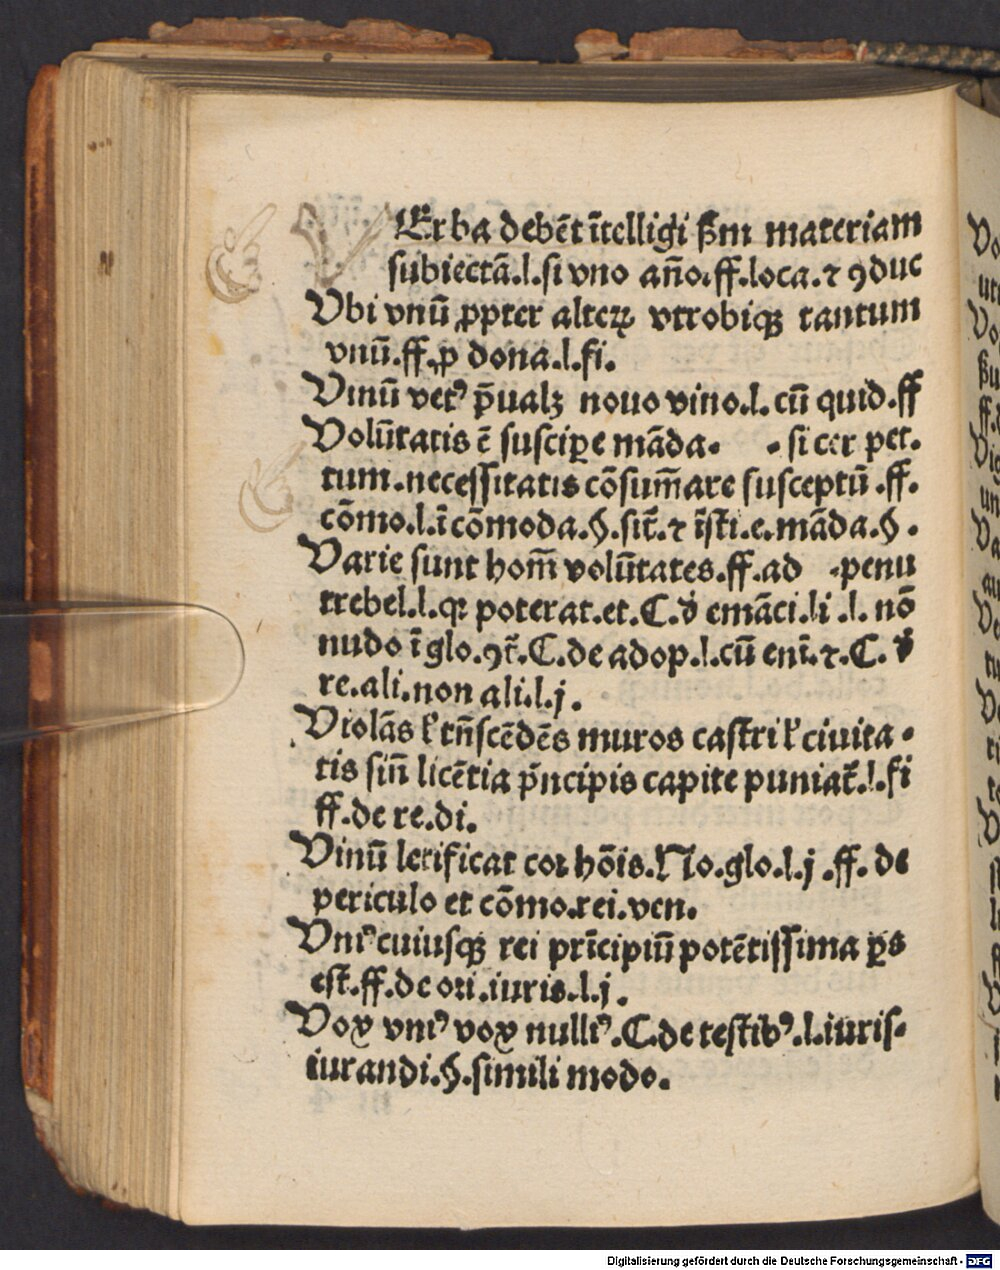 VErba debēt ītelligi ẞm materiam
subiectā.l.si vno año.ff.loca.⁊ ꝯduc
Vbi vnū ꝓpter alteꝝ vtrobiqꝫ tantum
vnū.ff.ꝓ dona.l.fi.
Vinū vetꝰ p̄ualꝫ nouo vino.l.cū quid.ff
Volūtatis ē suscipe māda. . si cer pet.
tum.necessitatis cōsum̄are susceptū.ff.
cōmo.l.ī cōmoda.§.sit̄.⁊ īsti.e.māda.§.
Varie sunt hom̄ volūtates.ff.ad .penu
trebel.l.qꝛ poterat.et.C.ď emāci.li .l. nō
nudo ī glo.ꝯt̄.C.de adop.l.cū enī.⁊.C. ď
re.ali.non ali.l.j.
Violās ł trn̄scēdēs muros castri ł ciuita
tis sin̄ licētia pn̄cipis capite puniat̄.l.fi
ff.de re.di.
Vinū letificat coꝛ hōis.No.glo.l.j.ff.de
periculo et cōmo.rei.ven.
Vniꝰcuiusqꝫ rei prīcipiū potētissima ꝑs
est.ff.de oꝛi.iuris.l.j.
Vox vniꝰ vox nulliꝰ.C.de testibꝰ.l.iuris-
iurandi.§.simili modo.
Digitalisierung gefördert durch die Deutsche Forschungsgemeinschaft - DFG